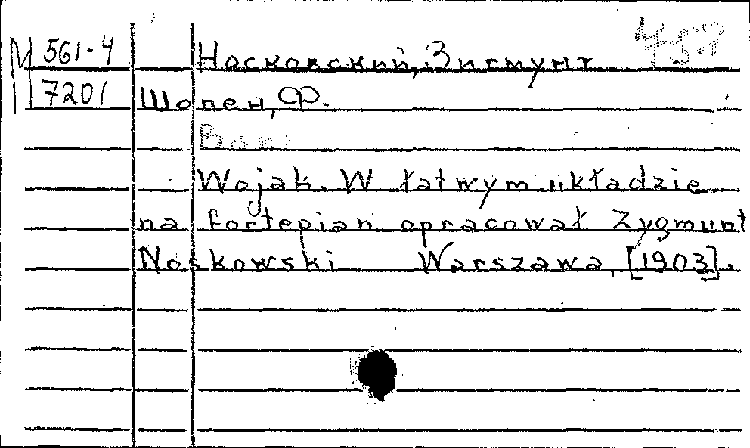 М 561-4 Носковский, Зигмунт
7201 Шопен, Ф.
Wojak. W łatwym układzie
na fortepian opracował Zygmunt
Noskowski Warszawa, [1903].